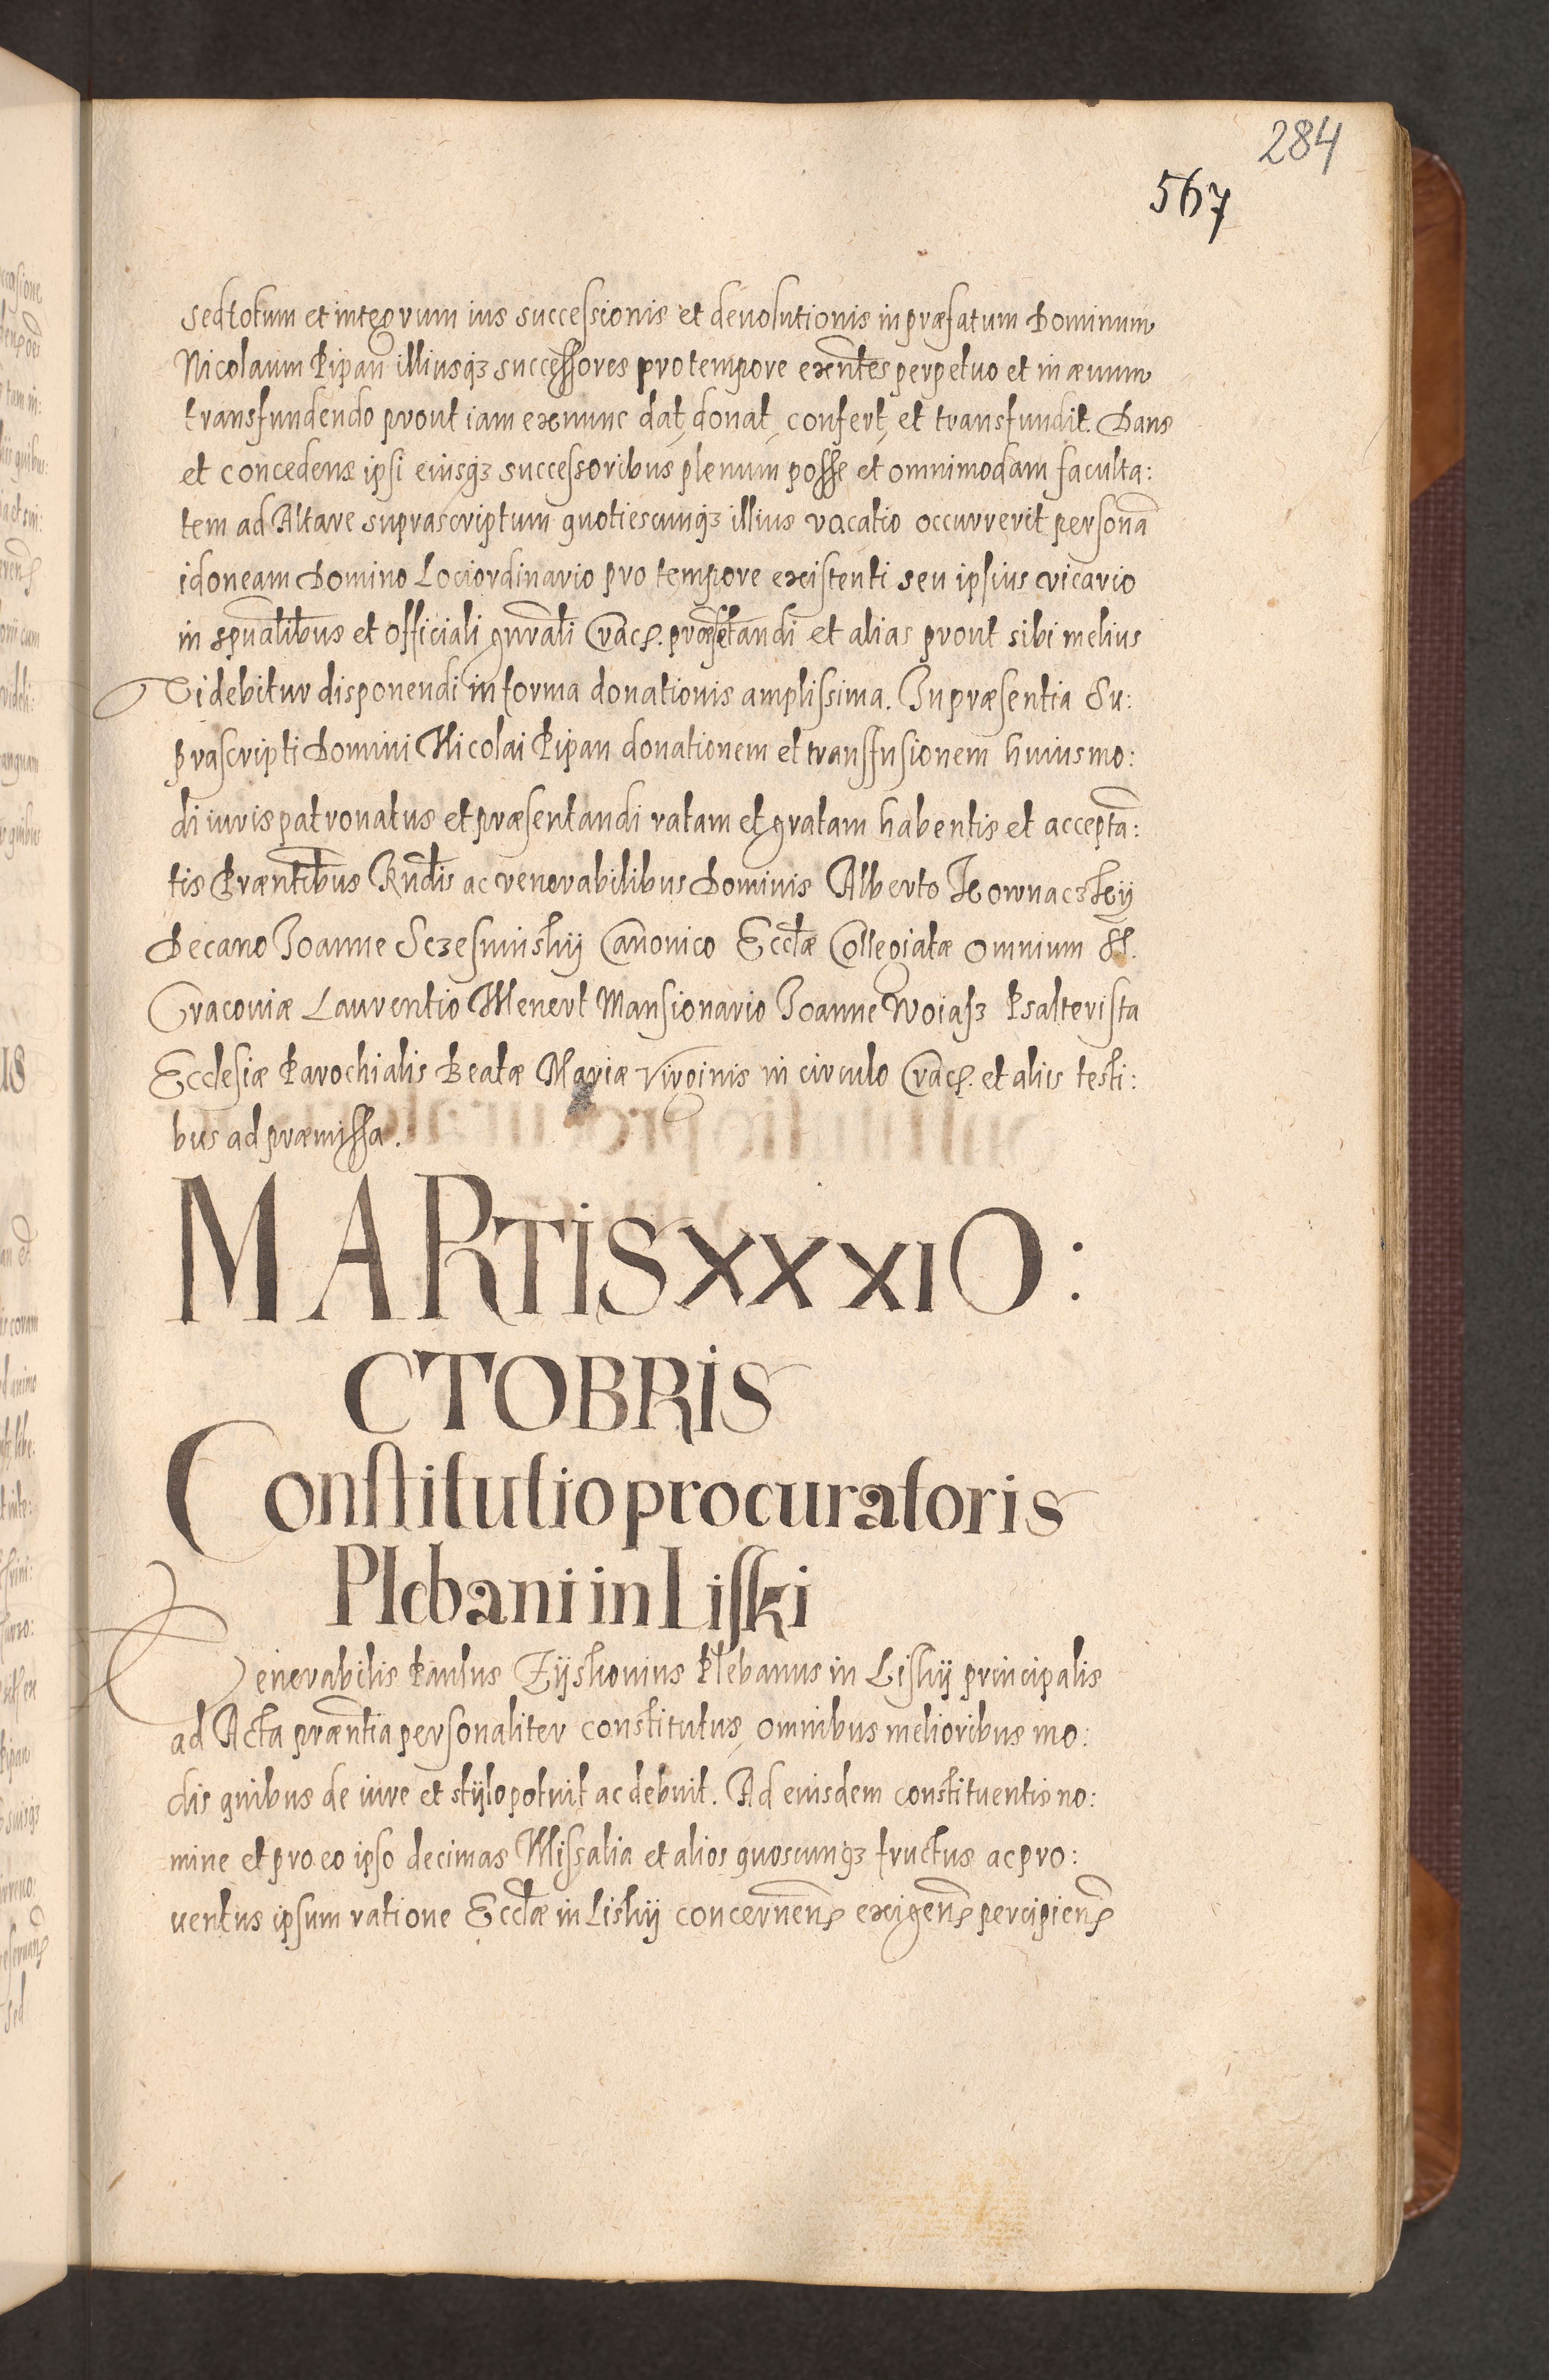 284
567
sed totum et integrum ius successionis et deuolutionis in præfatum Dominum
Nicolaum Pipan illiusq3 successores pro tempore exñtes perpetuo et in æuum
transfundendo prout iam exnunc dat, donat, confert, et transfundit. Dans
et concedens ipsi eiusq3 successoribus plenum posse et omnimodam faculta:
tem ad Altare suprascriptum quotiescunq3 illius vacatio occurrerit personã
idoneam Domino Lociordinario pro tempore existenti seu ipsius vicario
in spũalibus et officiali gñrali Crac. præsẽtandi et alias prout sibi melius
Videbitur disponendi in forma donationis amplissima. In præsentia Su:
prascripti Domini Nicolai Pipan donationem et transfusionem huiusmo:
di iuris patronatus et præsentandi ratam et gratam habentis et acceptã:
tis Præñtibus Rñdis ac venerabilibus Dominis Alberto
Decano Joanne Canonico Eccłæ Collegiatæ omnium SS.
Cracouiæ Laurentio Menert Mansionario Joanne Woiass Psalterista
Ecclesiæ Parochialis Beatæ Mariæ Virginis in circulo Crac. et aliis testi:
bus ad præmissa.
MARTIS XXXI O:
CTOBRIS
Constitutio procuratoris
Plebani in Liski
Venerabilis Paulus Plebanus in Liskij principalis
ad Acta præñtia personaliter constitutus, omnibus melioribus mo:
dis quibus de iure et stylo potuit ac debuit. Ad eiusdem constituentis no:
mine et pro eo ipso decimas Missalia et alios quoscunq3 fructus ac pro:
uentus ipsum ratione Eccłæ in Liskij concerneñ exigeñ percipieñ